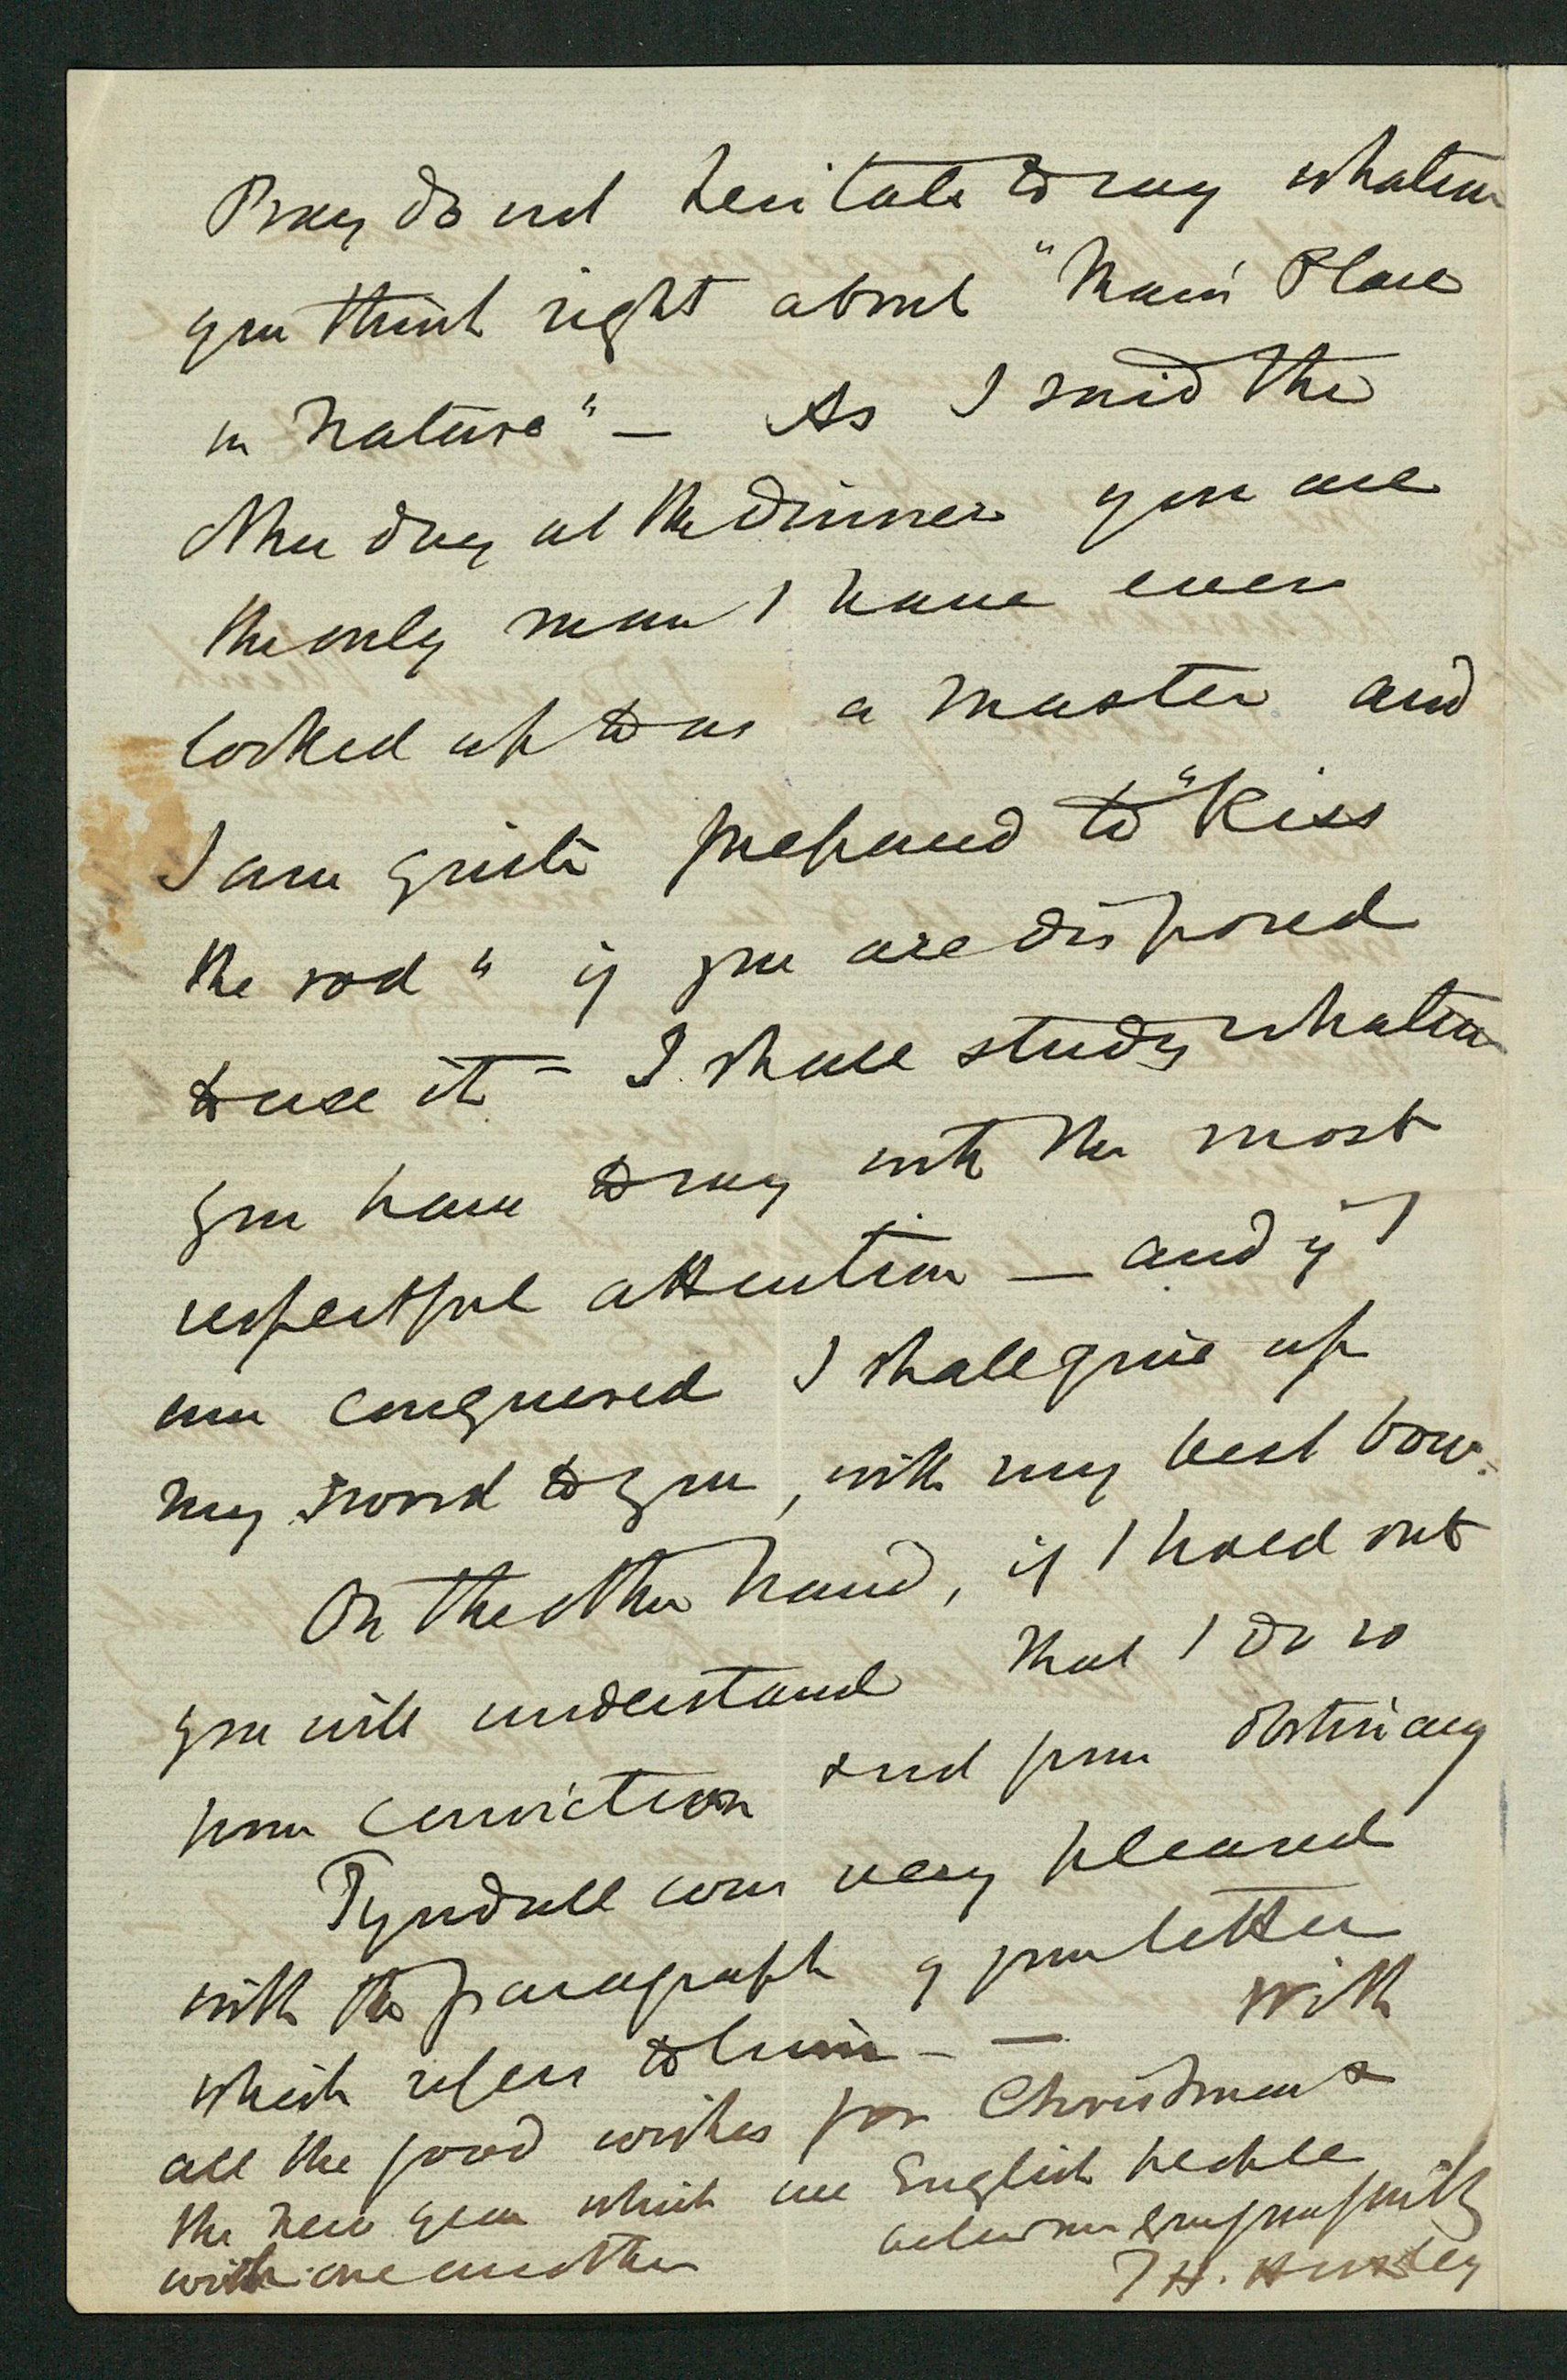 Pray do not hesitate to say whatever
you think right about "Man's Place
in Nature" — As I said the
other day at the dinner you are
the only man I have ever
looked up to as a master and
I am quite prepared to "Kiss
the rod" if you are disposed
to use it — I shall study whatever
you have to say with the most
respectful attention — and if I
am conquered I shall give up
my sword to you, with my best bow.
On the other hand, if I hold out
you will understand that I do so
from conviction and not from obstinacy
Tyndall was very pleased
with the paragraph of your letter
which refers to him — — With
all the good wishes for Christmas &
the New Year which we English people
wish one another
believe me yours faithfully
T H. Huxley